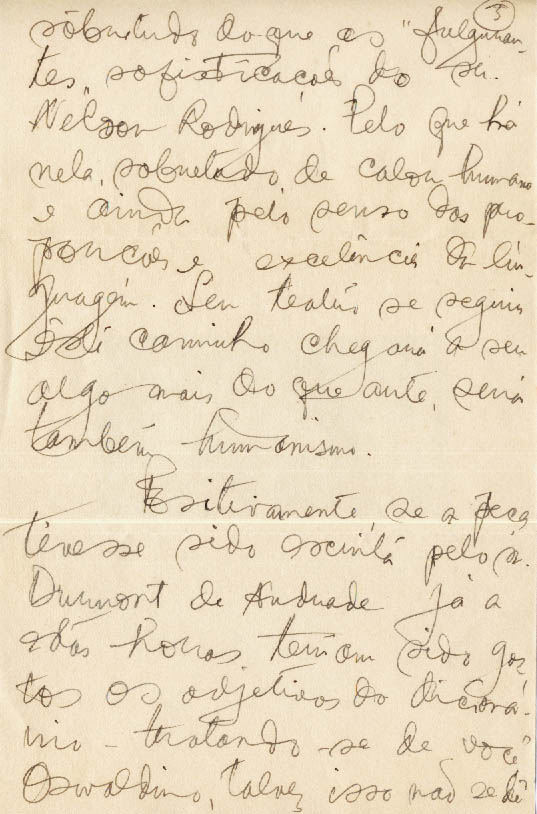 3
sobretudo do que as "fulguran-
tes" sofisticacões do sr.
Nelson Rodrigues. Pelo que há
nela, sobretudo de calor humano
e ainda pelo senso das pro-
porcões e excelência da lin-
guagem. Seu teatro se seguir
êste caminho chegará a ser
algo mais do que arte, será
também humanismo.
Positivamente, se a peça
tivesse sido escrita pelo sr.
Drumont de Andrade já a
estas horas teriam sido gas-
tos os adjetivos do dicioná-
rio - tratando-se de você
Oswaldino, talvez isso não se dê